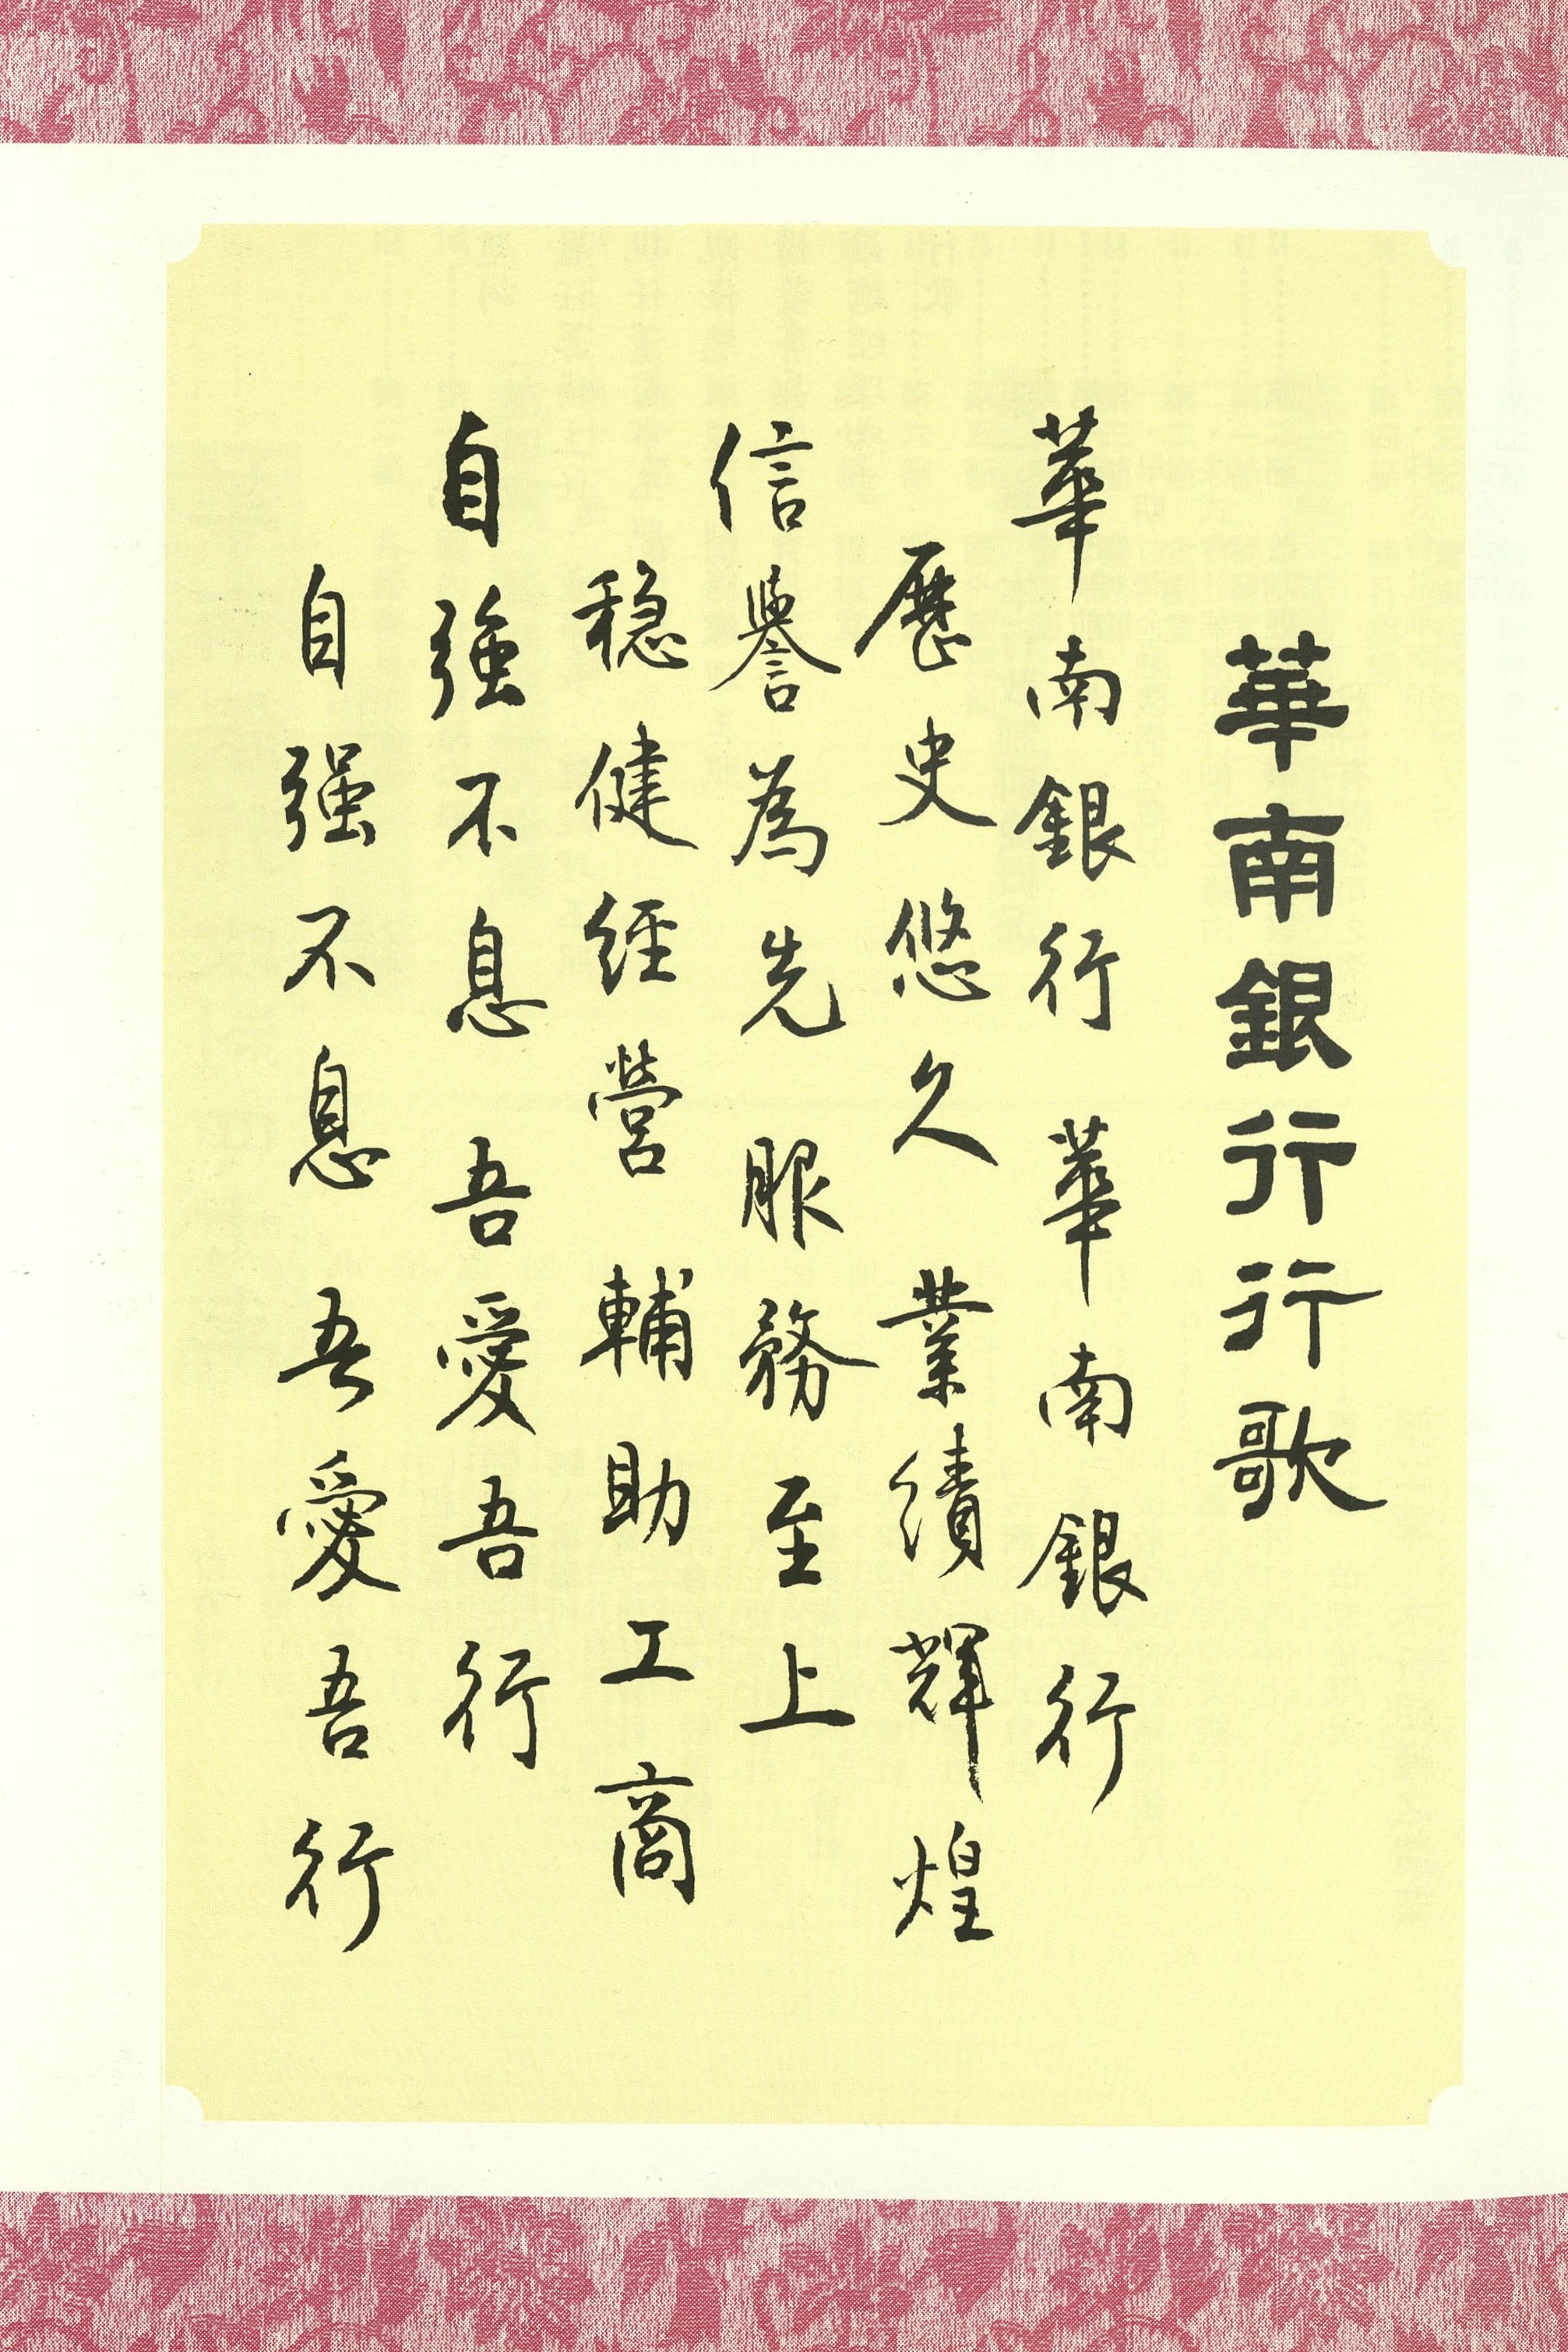 華南銀行行歌
華南銀行 華南銀行
歷史悠久 業績輝煌
信譽為先 服務至上
穩健經營 輔助工商
自強不息 吾愛吾行
自强不息 吾愛吾行